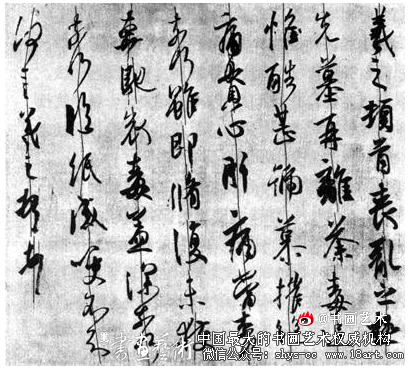 羲之頓首喪亂之極
先墓再離荼毒追
惟酷甚號慕摧絕
痛貫心肝痛當奈何
奈何雖即脩復未獲
奔馳哀毒益深奈何
奈何臨紙感哽不知
何言羲之頓首頓首
@书画艺术
书画艺术
中国最大的书画艺术权威机构
微信公众号：shys-cc www.18art.com